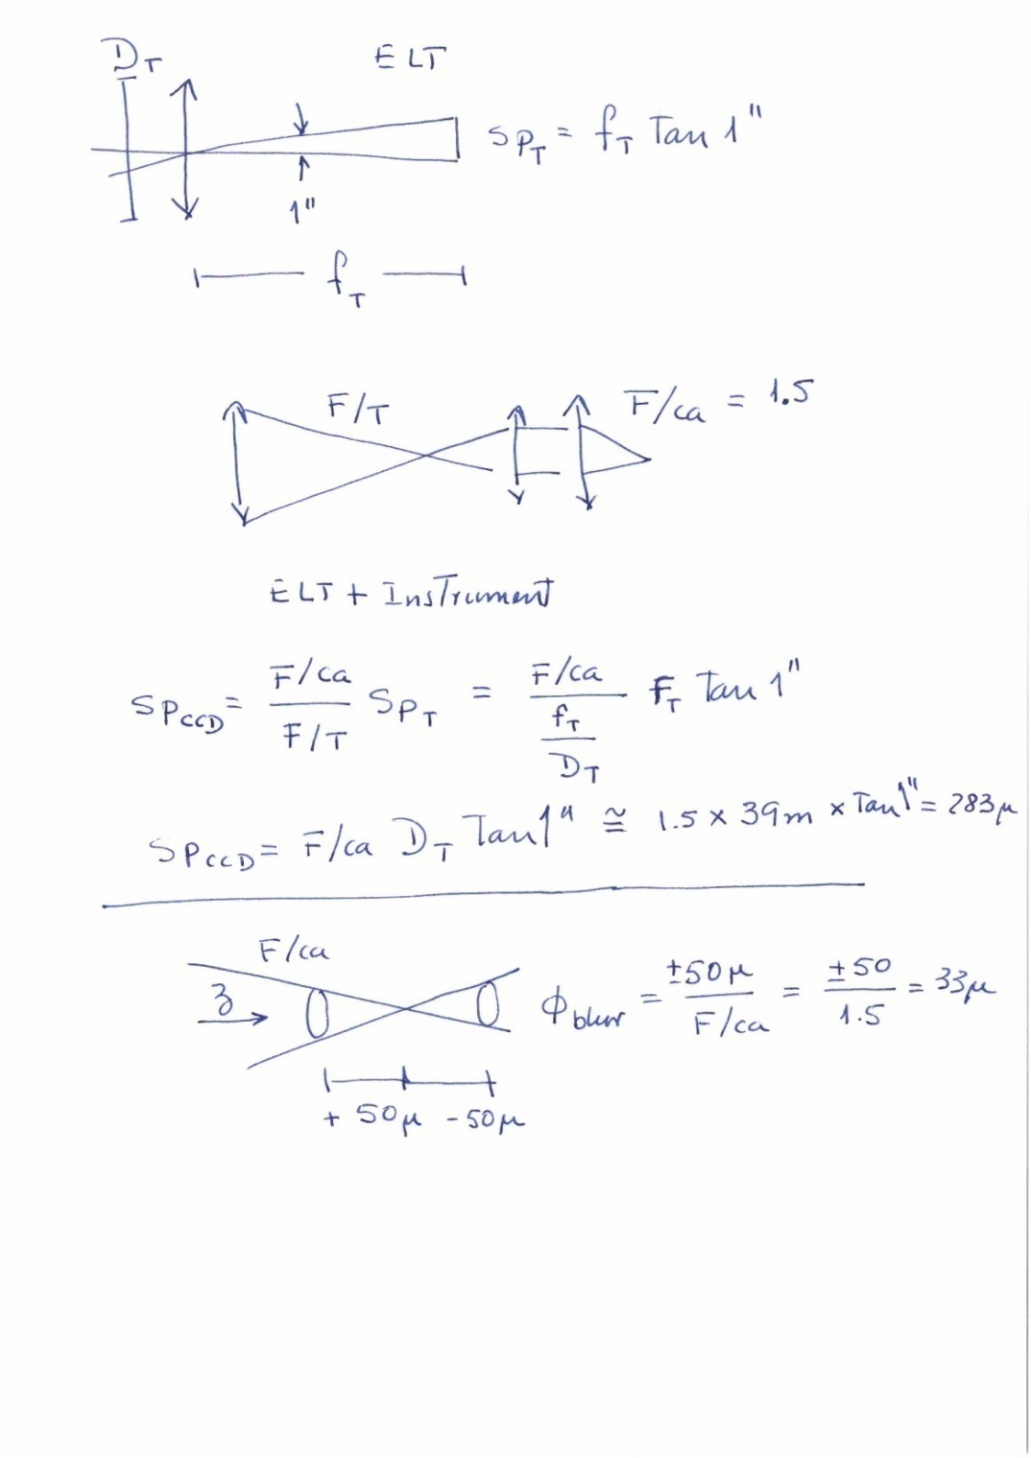 D_T ELT
SP_T = f_T Tan 1"
1"
f_T
F/T F/ca = 1.5
ELT + InsTrument
SP_CCD = (F/ca)/(F/T) SP_T = (F/ca)/(f_T/D_T) f_T Tan 1"
SP_CCD = F/ca D_T Tan 1" ≅ 1.5 × 39m × Tan 1" = 283μ
F/ca
z ϕ_blur = ±50μ/(F/ca) = ±50/1.5 = 33μ
+ 50μ - 50μ